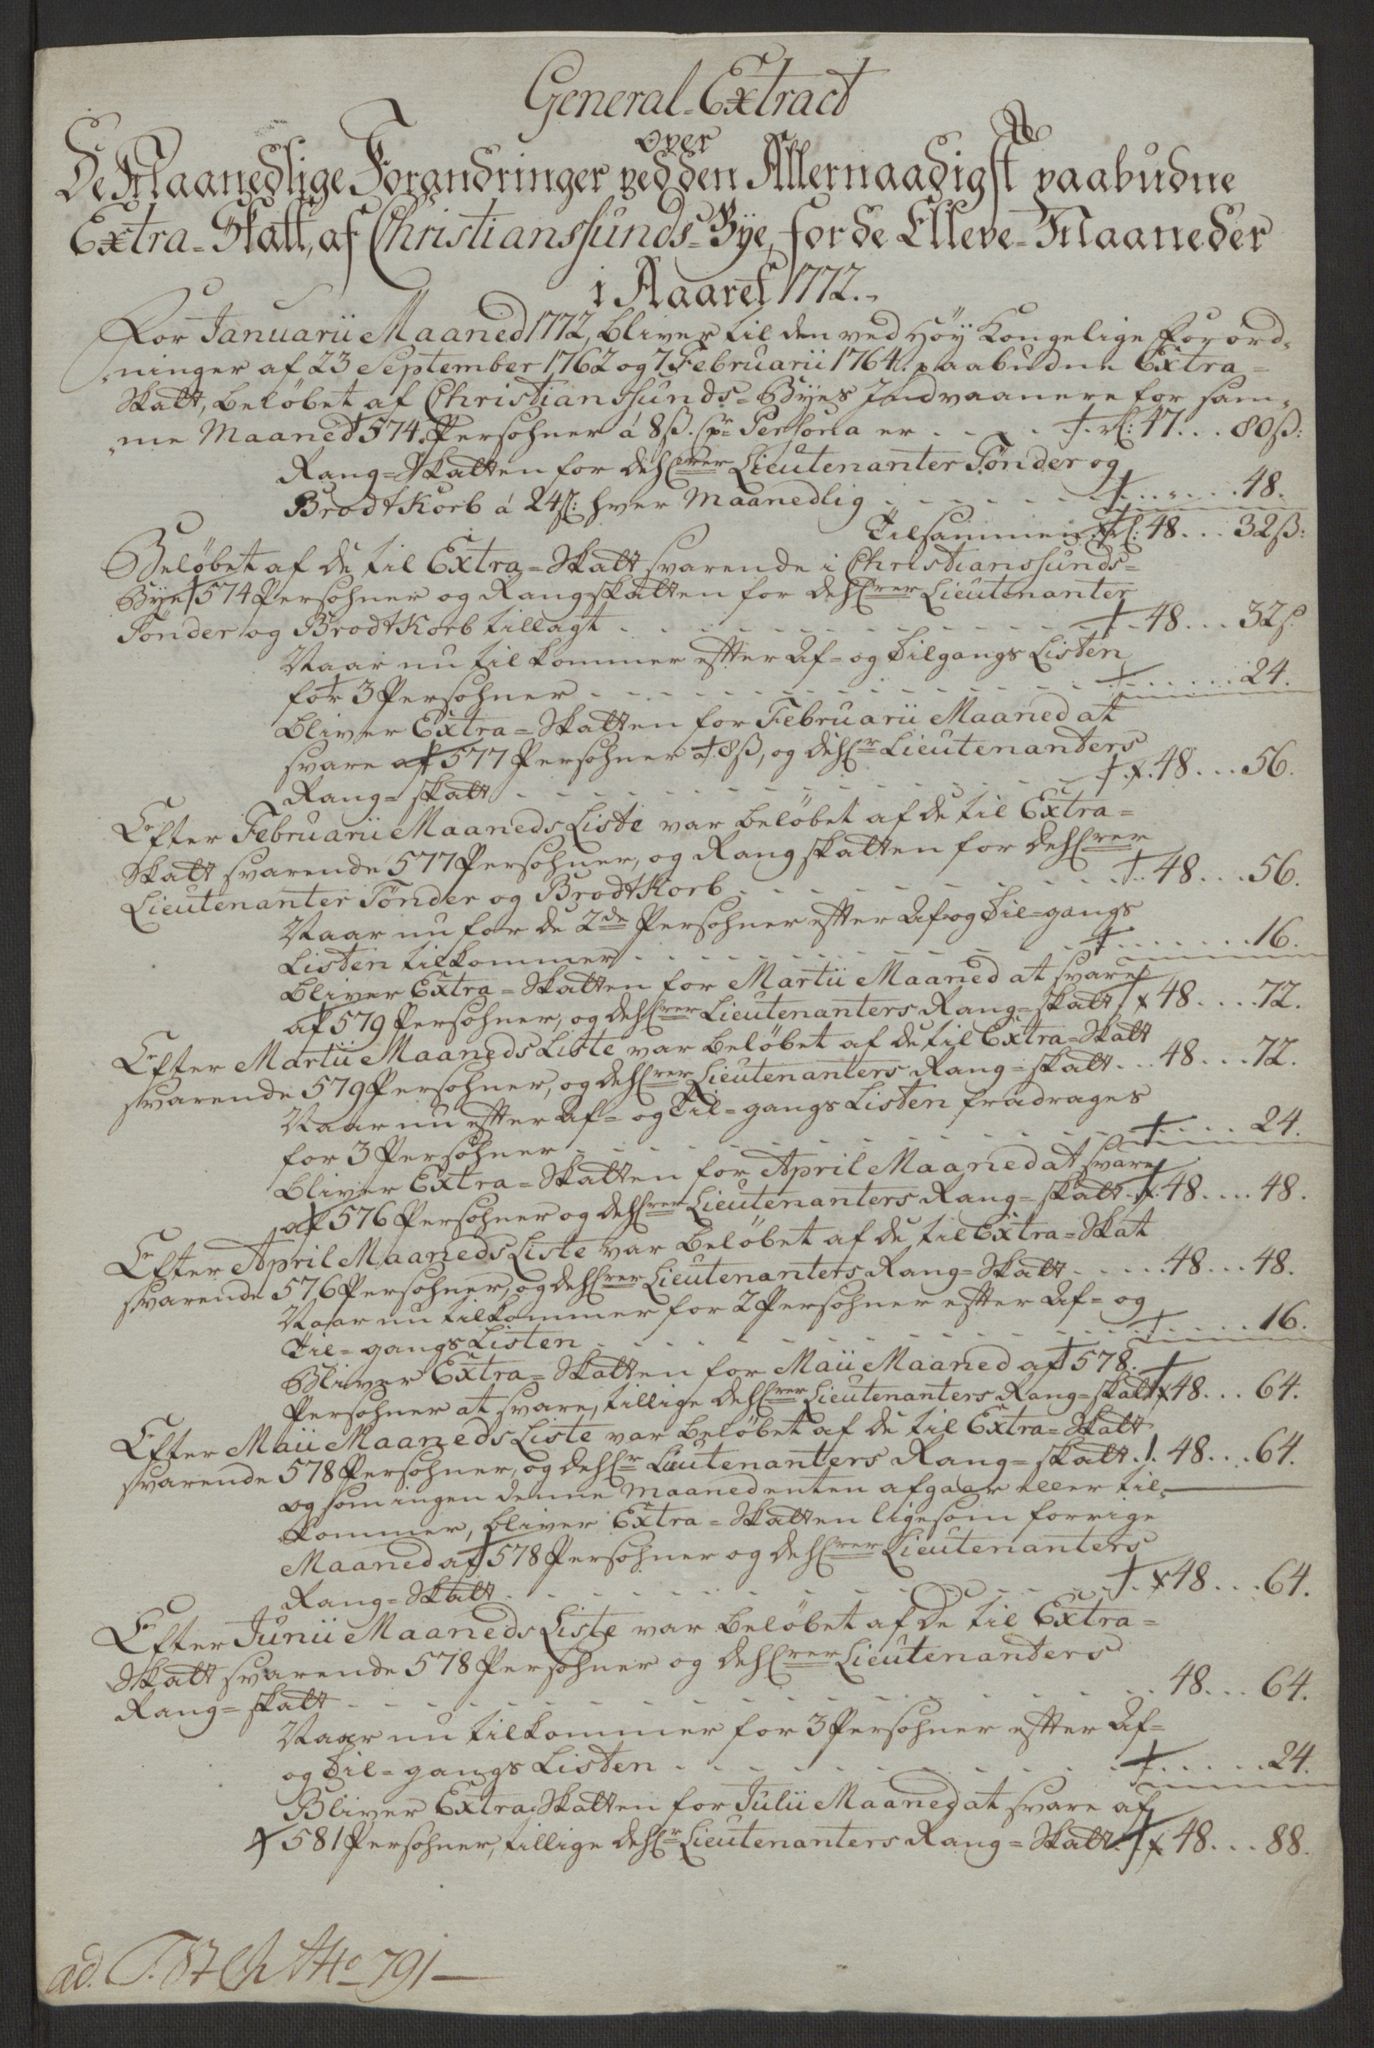 General-Extract
over
De Maanedlige Forandringer ved den Allernaadigst paabudne
Extra-Skatt, af Christianssunds-Bye, for de Elleve-Maaneder
i Aaret 1772.
For Januarii Maaned 1772, bliver til den ved Høy Kongelige Forord-
ninger af 23 September 1762 og 7 Februarii 1764 paabudne Extra-
Skatt, beløbet af Christianssunds-Byes Indvaanere for sam-
me Maaned 574 Persohner á 8ß. pr Persona er . . . . rl: 47 . . . 80ß:
Rang-Skatten for de Hrrer Lieutenanter Tønder og
Brodtkorb á 24ß: hver Maanedlig . . . . . . 48.
Tilsammen rl: 48 . . . 32ß:
Beløbet af de til Extra-Skatt svarende i Christianssunds-
Bye 574 Persohner og Rangskatten for de Hrrer Lieutenanter
Tønder og Brodtkorb tillagt . . . . . 48 . . . 32ß.
Naar nu tilkommer efter Af- og Tilgangs Listen
for 3 Persohner . . . . . . 24.
bliver Extra-Skatten for Februarii Maaned at
svare af 577 Persohner á 8ß, og de Hr Lieutenanters
Rang-skatt . . . . . 48 . . . 56.
Efter Februarii Maaneds Liste var beløbet af de til Extra-
Skatt svarende 577 Persohner, og Rangskatten for de Hrrer
Lieutenanter Tønder og Brodtkorb . . . . . 48 . . . 56.
Naar nu for de 2de Persohner efter Af og Til-gangs
Listen tilkommer . . . . . . 16.
bliver Extra-Skatten for Martii Maaned at svare
af 579 Persohner, og de Hrrer Lieutenanters Rang-skatt 48 . . . . 72.
Efter Martii Maaneds Liste var beløbet af de til Extra-Skatt
svarende 579 Persohner, og de Hrrer Lieutenanters Rang-skatt . . . 48 . . . 72.
Naar nu efter Af- og Til-gangs Listen fradrages
for 3 Persohner . . . . . . 24.
bliver Extra-Skatten for April Maaned at svare
af 576 Persohner og de Hrrer Lieutenanters Rang-skatt . 48 . . . . 48.
Efter April Maaneds Liste var beløbet af de til Extra-Skat
svarende 576 Persohner, og de Hrrer Lieutenanters Rang-Skatt . . . . . 48 . . . 48.
Naar nu tilkommer for 2 Persohner efter Af- og
Til-gangs Listen . . . . . . 16.
Bliver Extra-Skatten for Maii Maaned af 578.
Persohner at svare, tillige de Hrrer Lieutenanters Rang-skatt 48 . . . 64.
Efter Maii Maaneds Liste var beløbet af de til Extra-Skatt
svarende 578 Persohner, og de Hr Lieutenanters Rang-skatt . . 48 . . . 64.
og som ingen denne Maaned enten afgaar eller til-
kommer, bliver Extra-Skatten ligesom forrige
Maaned af 578 Persohner og de Hrrer Lieutenanters
Rang-Skatt . . . . . 48 . . . 64.
Efter Junii Maaneds Liste var beløbet af de til Extra-
Skatt svarende 578 Persohner og de Hrrer Lieutenanters
Rang-skatt . . . . . 48 . . . 64.
Naar nu tilkommer for 3 Persohner efter Af-
og Til-gangs Listen . . . . . . 24.
Bliver Extra Skatten for Julii Maaned at svare af
581 Persohner, tillige de Hr Lieutenanters Rang-Skatt . 48 . . . 88.
ad. No 791